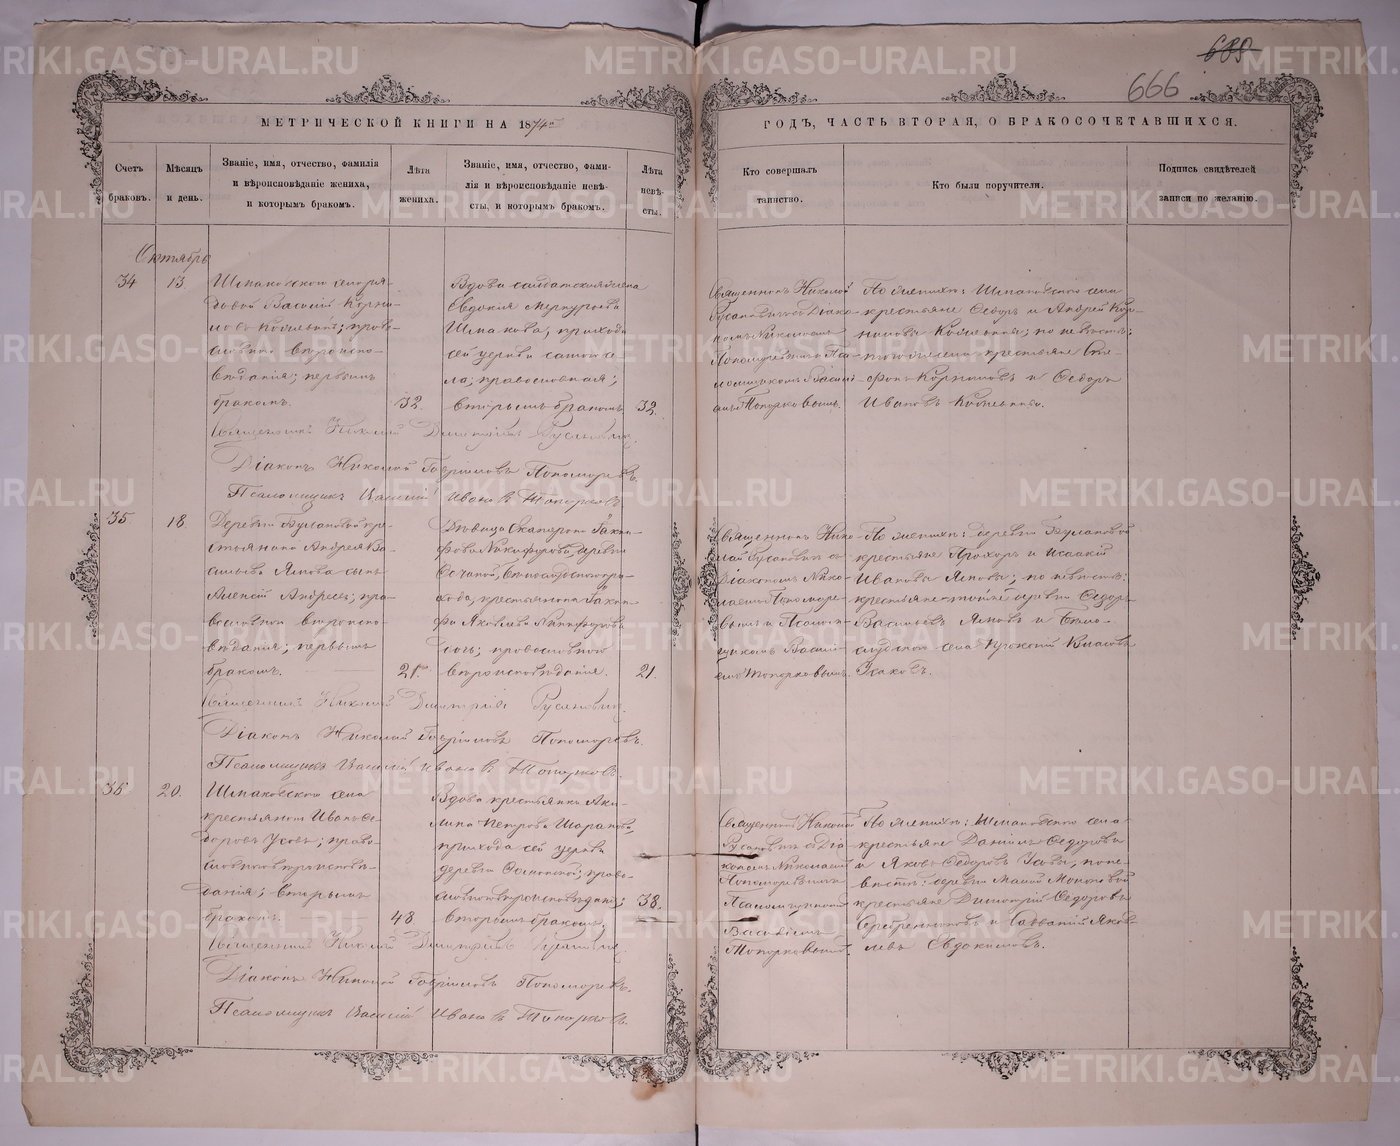 689
666
МЕТРИЧЕСКОЙ КНИГИ НА 1874й
ГОДЪ, ЧАСТЬ ВТОРАЯ, О БРАКОСОЧЕТАВШИХСЯ.
Счетъ браковъ.
Мѣсяцъ и день.
Званіе, имя, отчество, фамилія
и вѣроисповѣданіе жениха,
и которымъ бракомъ.
Лѣта жениха.
Званіе, имя, отчество, фами-
лія и вѣроисповѣданіе невѣ-
сты, и которымъ бракомъ.
Лѣта невѣ-
сты.
Кто совершалъ
таинство.
Кто были поручители.
Подпись свидѣтелей
записи по желанію.
Октябрь
34
13.
Шмаковского села ря-
довой Василій Корни-
ловъ; право-
славного вѣроиспо-
вѣданія; первымъ
бракомъ.
32.
Вдова солдатская жена
Евдокия Меркурьева
Шмакова, прихода
сей церкви самого се-
ла, православная;
вторымъ бракомъ
32.
Священникъ Николай
Русановичъ съ Діако-
номъ Николаемъ
Пономаревымъ и Пса-
ломщикомъ Василі-
емъ Топорковымъ.
По женихѣ: Шмаковского села
крестьяне Ѳедоръ и Андрей Кор-
ниловы; по невѣстѣ:
крестьяне Сте-
фанъ Корниловъ и Ѳедоръ
Ивановъ
Священникъ Николай Димитріевъ Русановичъ.
Діаконъ Николай Гавриловъ Пономаревъ.
Псаломщикъ Василій Ивановъ Топорковъ
35.
18.
Деревни Булановой кре-
стьянина Андрея Ва-
сильева Япова сынъ
Алексій Андреевъ; пра-
вославного вѣроиспо-
вѣданія; первымъ
бракомъ.
21.
Дѣвица Екатерина
Никифорова, деревни
прихода, крестьянина
Яковлева Никифорова
дочь; православного
вѣроисповѣданія.
21.
Священникъ Нико-
лай Русановичъ съ
Діакономъ Нико-
лаемъ Пономаре-
вымъ и Псалом-
щикомъ Васили-
емъ Топорковымъ.
По женихѣ: деревни Булановой
крестьяне Прохоръ и Исаакій
Ивановы Яповы; по невѣстѣ:
крестьяне той же деревни Ѳедоръ
Васильевъ Яповъ и
села
Священникъ Николай Димитрій Русановичъ.
Діаконъ Николай Гавриловъ Пономаревъ.
Псаломщикъ Василій Ивановъ Топорковъ.
36
20.
Шмаковского села
крестьянинъ Иванъ Ѳе-
доровъ Усовъ; право-
славного вѣроисповѣ-
данія; вторымъ
бракомъ.
48
Вдова крестьянка Аку-
лина Петрова Шарапова,
прихода сей церкви
деревни; право-
славного вѣроисповѣданія;
вторымъ бракомъ.
38.
Священникъ Николай
Русановичъ съ Діа-
кономъ Николаемъ
Пономаревымъ и
Псаломщикомъ
Василіемъ
Топорковымъ.
По женихѣ: Шмаковского села
крестьяне Даніилъ Ѳедоровъ
и Яковъ Ѳедоровъ Усовы; по не-
вѣстѣ: деревни Малой
крестьяне Димитрій Ѳедоровъ
Серебренниковъ и Савватій Яков-
левъ Евдокимовъ.
Священникъ Николай Димитріевъ Русановичъ
Діаконъ Николай Гавриловъ Пономаревъ.
Псаломщикъ Василій Ивановъ Топорковъ.
METRIKI.GASO-URAL.RU